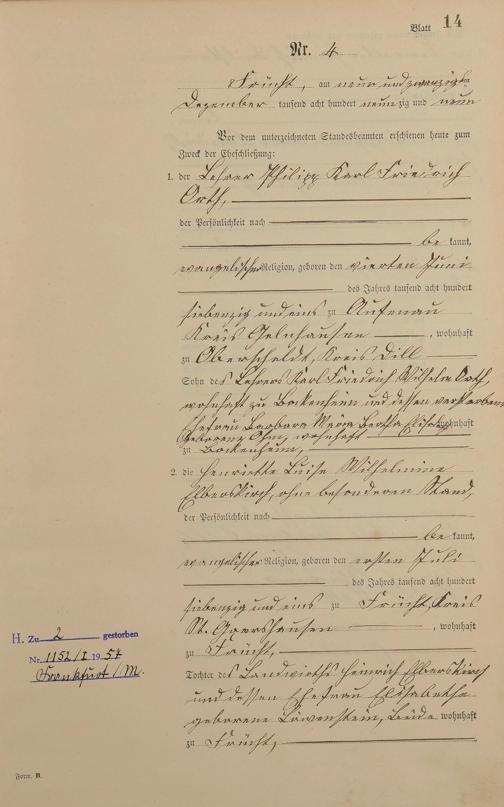 Blatt 14
Nr. 4
Frücht, am neun und zwanzigsten
Dezember tausend acht hundert neunzig und neun
Vor dem unterzeichneten Standesbeamten erschienen heute zum
Zweck der Eheschließung:
1. der Lehrer Philipp Karl Friedrich
Orth,
der Persönlichkeit nach
be kannt,
evangelischer Religion, geboren den vierten Juni
des Jahres tausend acht hundert
siebenzig und eins zu Aufenau
Kreis Gelnhausen, wohnhaft
zu Oberscheld, Kreis Dill
Sohn des Lehrers Karl Friedrich Wilhelm Orth,
wohnhaft zu Bockenheim und dessen verstorbenen
Ehefrau Barbara Maria Bertha wohnhaft
geborene Ohm, wohnhaft
zu Bockenheim,
2. die Henriette Luise Wilhelmine
Elberskirch, ohne besonderen Stand,
der Persönlichkeit nach
be kannt,
evangelischer Religion, geboren den ersten Juli
des Jahres tausend acht hundert
siebenzig und eins zu Frücht, Kreis
St. Goarshausen, wohnhaft
zu Frücht,
Tochter des Landwirths Heinrich Elberskirch
und dessen Ehefrau Elisabetha
geborene Löwenstein, Beide wohnhaft
zu Frücht,
H. Zu 2 gestorben
Nr. 1152/I 1954
Frankfurt/M.
Form. B.